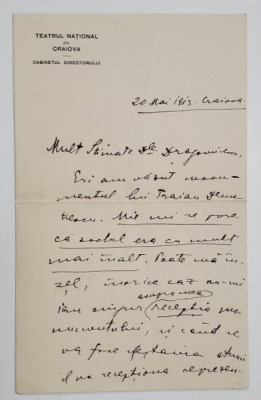 TEATRUL NAȚIONAL
DIN
CRAIOVA
CABINETUL DIRECTORULUI
20 Mai 1913. Craiova.
Mult Stimate Dle
Eri am văzut monu-
mentul lui Traian Deme-
trescu. Mie mi se pare
că soclul era cu mult
mai înalt. Poate mă în-
șel, în orice caz nu-mi
iau singur recepția mo-
numentului, și când se
va face
îl va recepționa